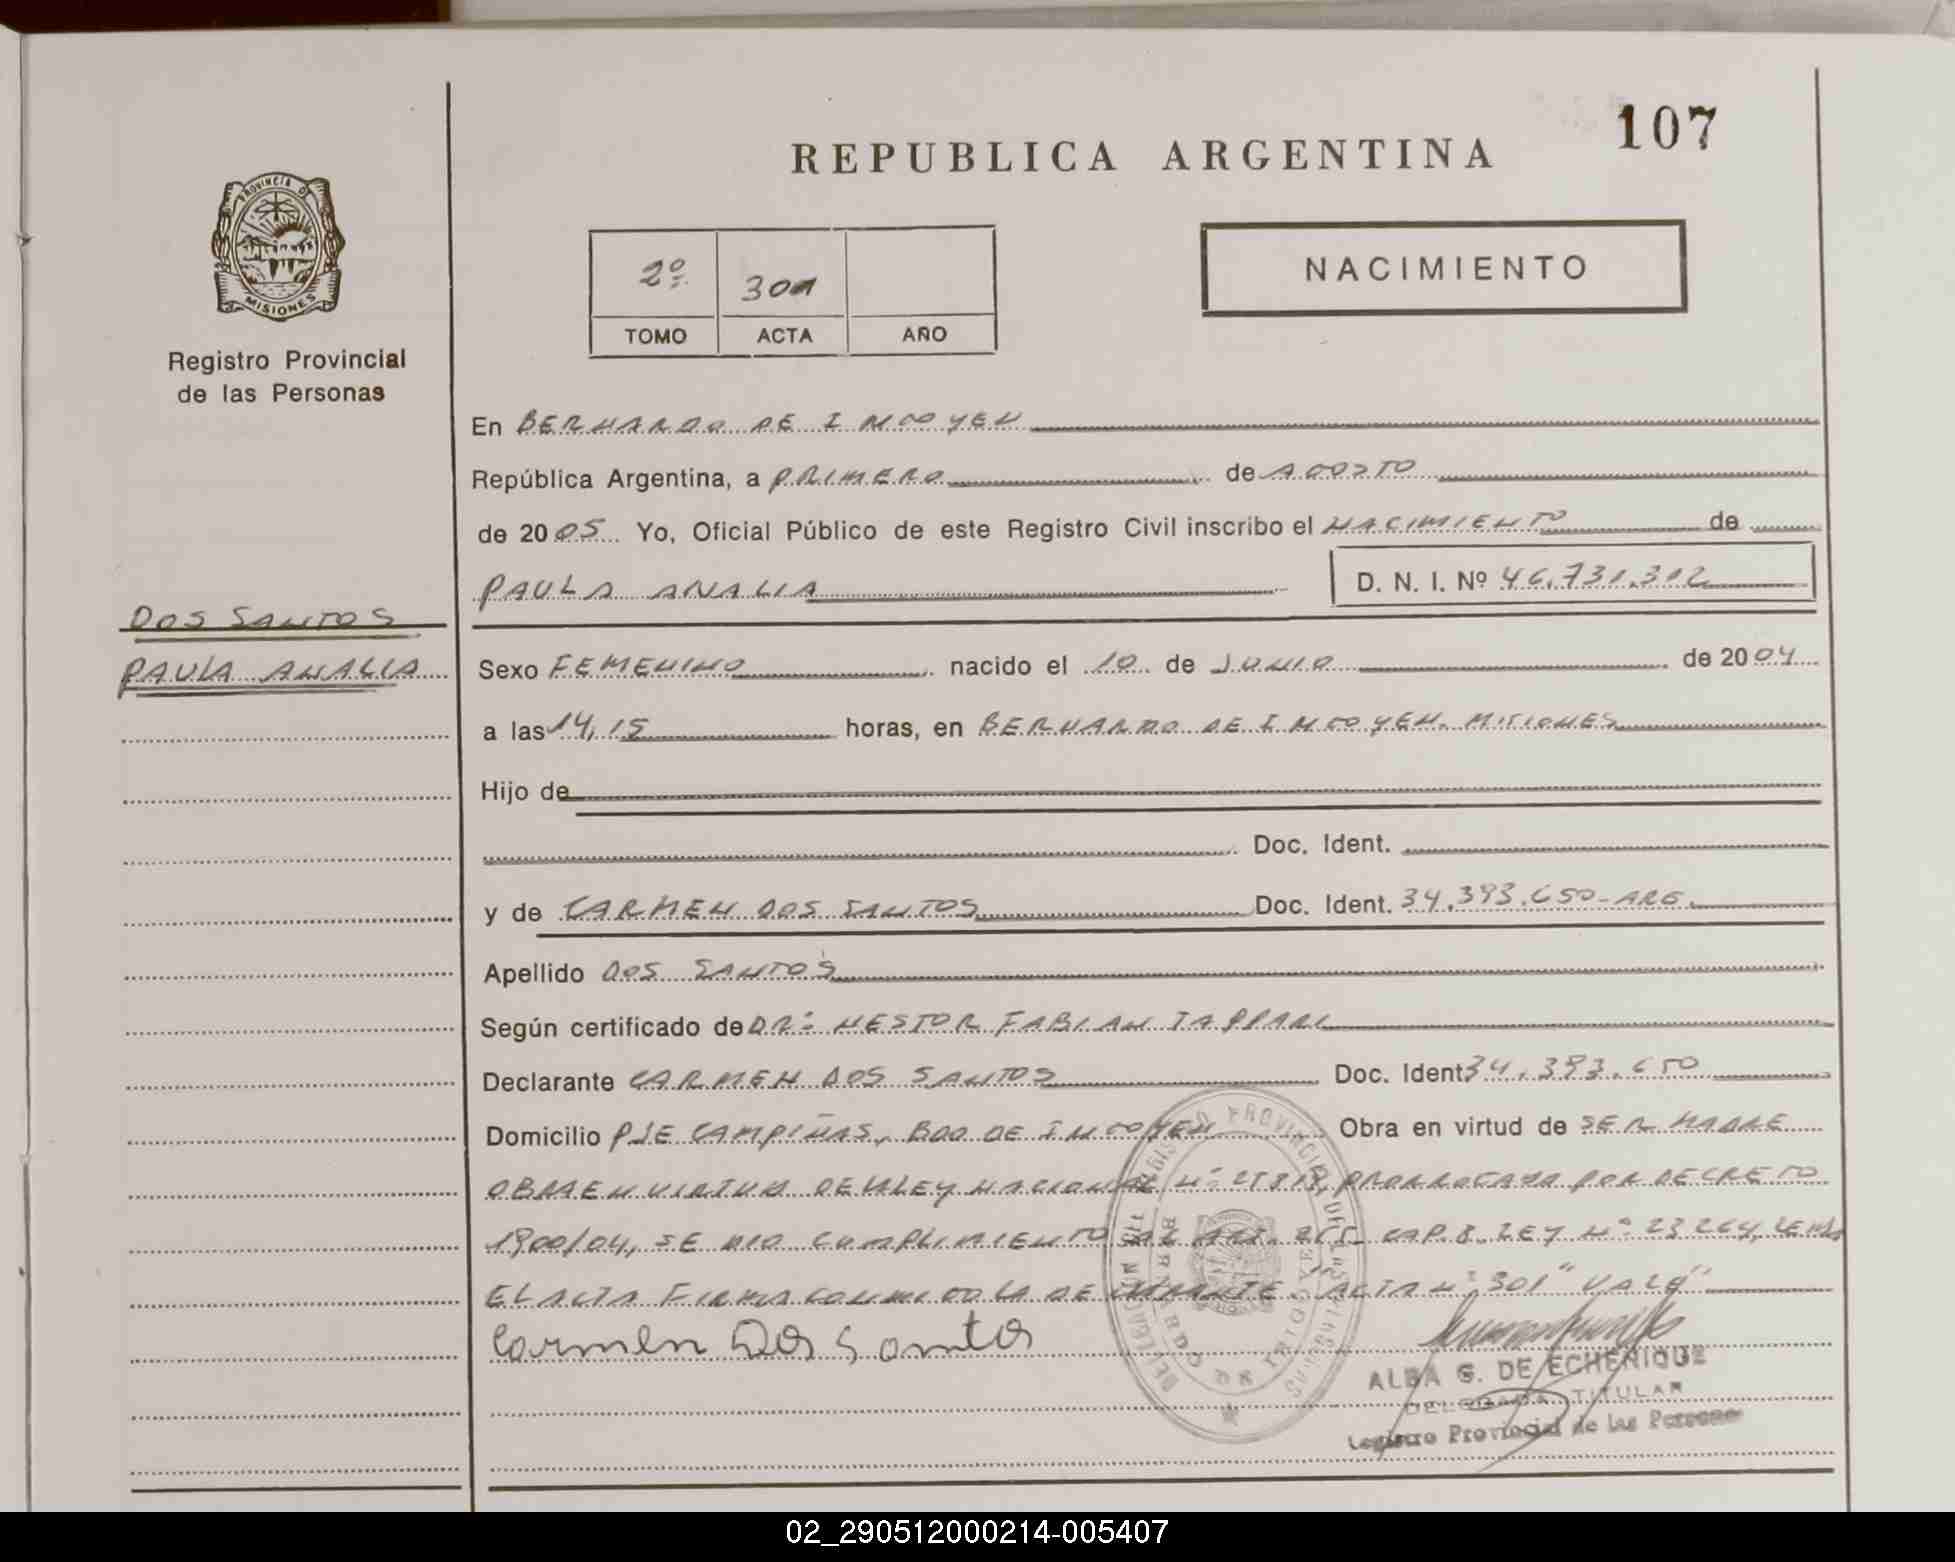 107
REPUBLICA ARGENTINA
PROVINCIA DE
MISIONES
Registro Provincial
de las Personas
2º 301
TOMO ACTA AÑO
NACIMIENTO
En BERNARDO DE IRIGOYEN
República Argentina, a PRIMERO de AGOSTO
de 2005 Yo, Oficial Público de este Registro Civil inscribo el NACIMIENTO de
PAULA ANALIA D. N. I. Nº 46.731.312
DOS SANTOS
PAULA ANALIA
Sexo FEMENINO nacido el 10 de JUNIO de 2004
a las 14,15 horas, en BERNARDO DE IRIGOYEN. MISIONES
Hijo de
Doc. Ident.
y de CARMEN DOS SANTOS Doc. Ident. 34.393.650-ARG.
Apellido DOS SANTOS
Según certificado de DR: NESTOR FABIAN
Declarante CARMEN DOS SANTOS Doc. Ident 34.393.650
Domicilio PJE CAMPIÑAS, BDO DE IRIGOYEN Obra en virtud de SER MADRE
OBRA EN VIRTUD DE LA LEY NACIONAL Nº 25818, PRORROGADA POR DECRETO
1900/04, SE DIO CUMPLIMIENTO AL ART. CAP. 8. LEY Nº 23264, LEIDA
EL ACTA FIRMA CONMIGO LA DECLARANTE "ACTA Nº 301" VALE"
Carmen Dos Santos
ALBA G. DE ECHENIQUE
DELEGADA TITULAR
Registro Provincial de las Personas
02_290512000214-005407